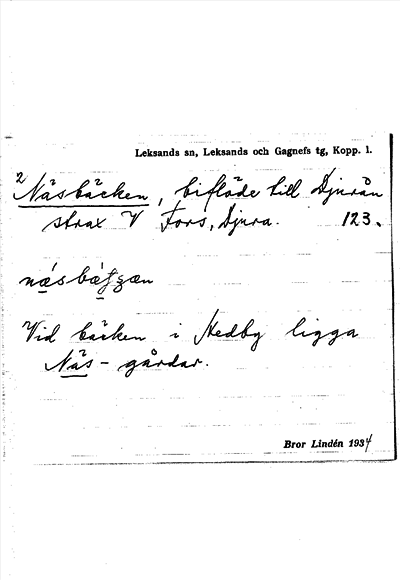 Leksands sn, Leksands och Gagnefs tg, Kopp. l.
2 Näsbäcken, biflöde till Djurån
strax V Fors, Djura. 123.
Vid bäcken i Hedby ligga
Näs-gårdar.
Bror Lindén 1934